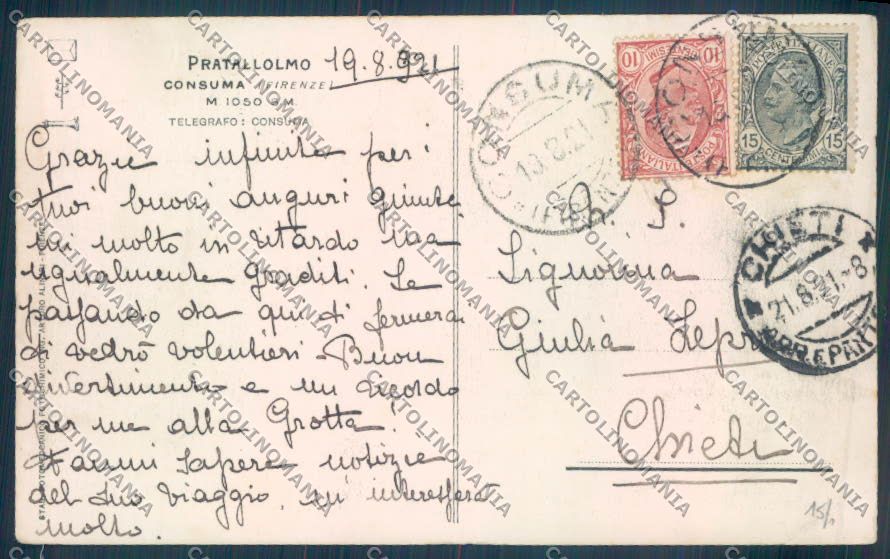 PRATALLOLMO 19.8.921
CONSUMA (FIRENZE)
M 1050 S/M
TELEGRAFO: CONSUMA
Grazie infinite per i
tuoi buoni auguri giunte
mi molto in ritardo ma
ugualmente graditi. Se
passando da qui ti fermerai
ti vedrò volentieri. Buon
divertimento e un ricordo
per me alla Grotta!
Fammi sapere notizie
del tuo viaggio, mi interesserà
molto.
10 10
CENTESIMI
POSTE ITALIANE
POSTE ITALIANE
15 15
CENT
CONSUMA
19.8.21
(FIRENZE)
CHIETI
21.8.21.-8
ARR. E PART.
Signorina
Giulia
Chieti
15/
CARTOLINOMANIA